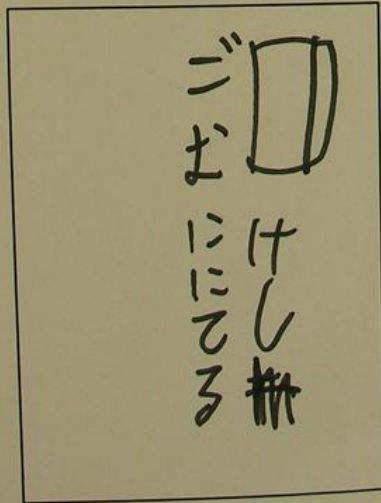 けし
ごむににてる